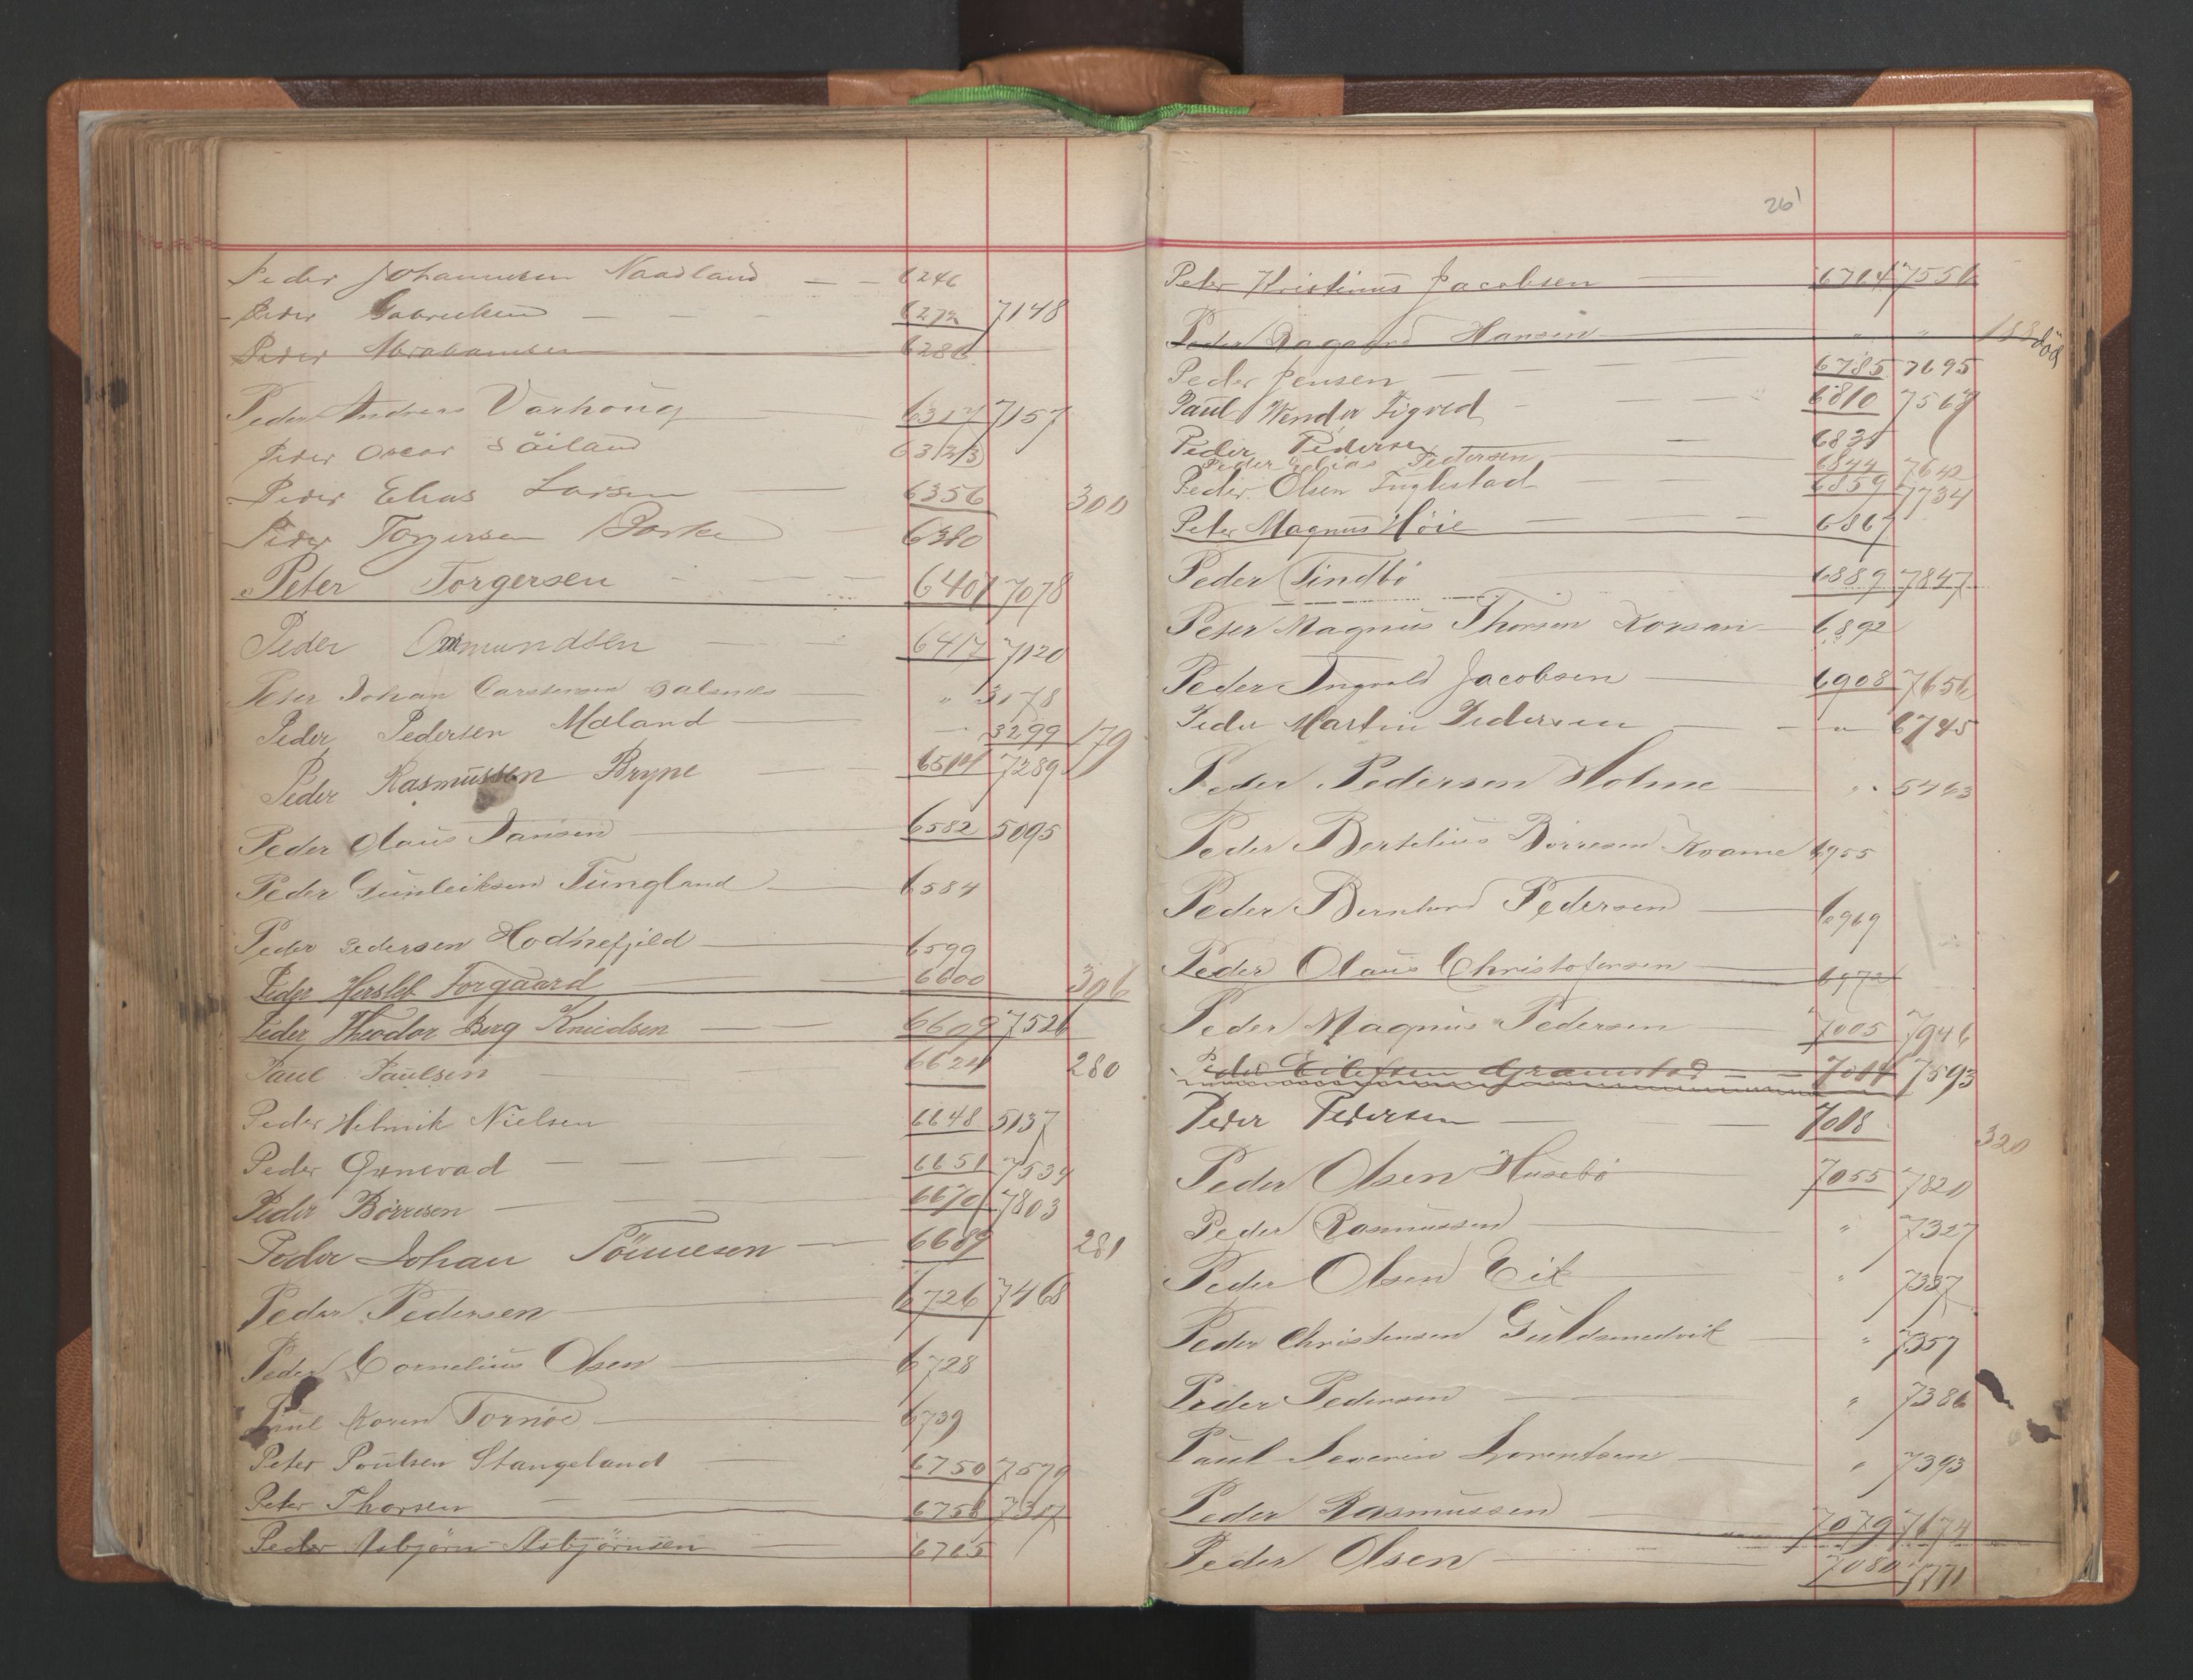 Peder Johannesen Naadland — — 6246
Peder Gabrielsen — — — 6272 7148
Peder Abrahamsen 6286
Peder Andreas Varhoug 6317 7157
Peder Oscar Säiland 6323
Peder Elias Larsen — 6356 300
Peder Torgersen — 6380
Peter Torgersen — — — 6401 7078
Peder Ommundsen — — 6417 7120
Peter Johan Carstensen — " 3178
Peder Pedersen Mæland — — 3299 179
Peder Rasmussen Bryne — 6514 7289
Peder Olaus Jansen — 6582 5095
Peder Gunleiksen Tungland — 6584
Peder Pedersen Hodnefjeld — 6599
Peder Hersleb Forgaard — 6600 306
Peder Theodor Berg Knudsen — — 6609 7526
Paul Paulsen — — 6624 280
Peder Helmik Nielsen — 6648 5137
Peder Grnevad — — — — 6651 7539
Peder Börresen — — 6670 7803
Peder Johan Tönnesen — 6689 281
Peder Pedersen — 6726 7468
Peder Cornelius Olsen — 6728
Paul Koren Tornöe — 6739
Peter Poulsen Stangeland — 6750 7579
Peter Thorsen — — 6758 7317
Peder Asbjörn Asbjörnsen — 6765
261
Peter Kristinus Jacobsen — 6764 7556
Peder Aagaard Hansen — " " 188 död
Peder Jensen — — — — 6785 7695
Paul Wender Tigved — — — 6810 7567
Peder Pedersen — 6831
Peder Elias Pedersen — 6844 7642
Peder Olsen Tuglestad — — 6859 7734
Peter Magnus Höie — — — — 6867
Peder Tindbö — 6889 7847
Peter Magnus Thorsen — 6892
Peder Ingvald Jacobsen — 6908 7656
Peder Martin Pedersen — — " 6745
Peder Pedersen Holme — " 5463
Peder Bertelius Börresen Kvame 6955
Peder Bernhard Pedersen — 6969
Peder Olaus Christofersen — 6972
Peder Magnus Pedersen — 7005 7946
Peder Eilefsen Gramstad — — 7014 7593
Peder Pedersen — — 7018 320
Peder Olsen Husebö 7055 7820
Peder Rasmussen — " 7327
Peder Olsen Eik — " 7337
Peder Christensen Guldsmedvik — " 7357
Peder Pedersen — — " 7386
Paul Severin Lorentsen — " 7393
Peder Rasmussen — 7079 7674
Peder Olsen — 7080 7771